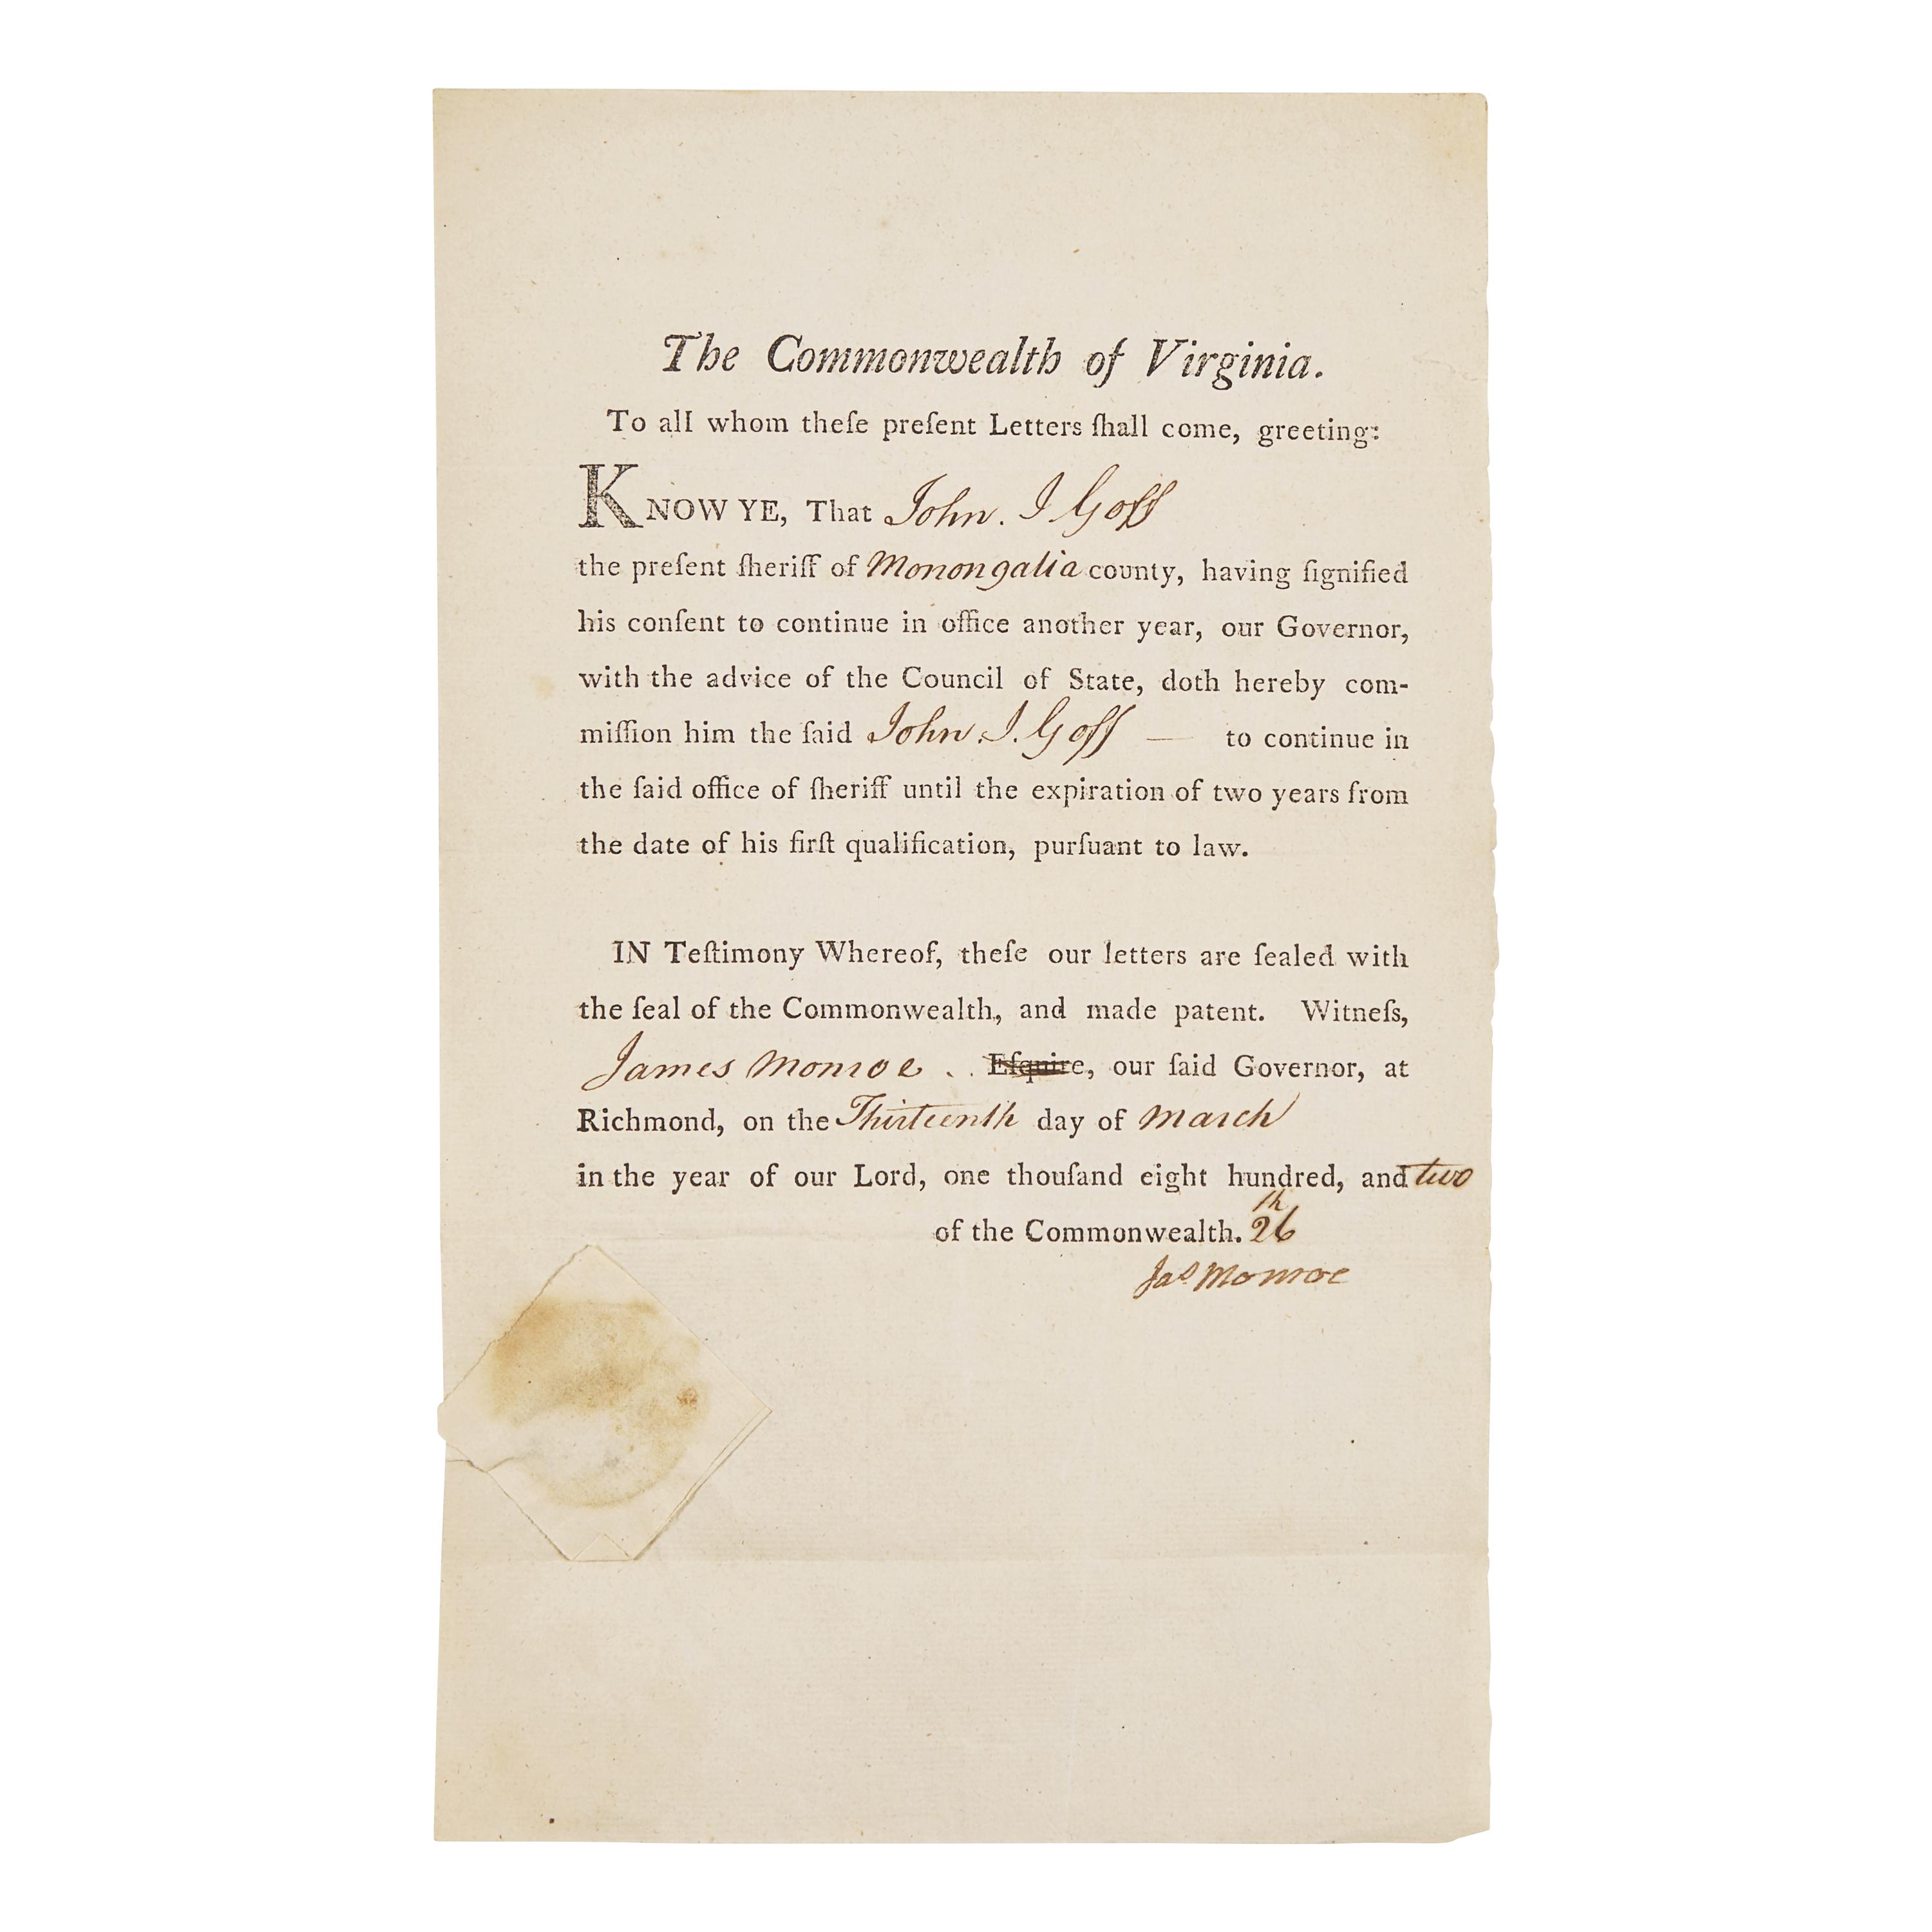 The Commonwealth of Virginia.
To all whom theſe preſent Letters ſhall come, greeting:
KNOW YE, That John. J Goff
the preſent ſheriff of Monongalia county, having ſignified
his conſent to continue in office another year, our Governor,
with the advice of the Council of State, doth hereby com-
miſſion him the ſaid John. J. Goff — to continue in
the ſaid office of ſheriff until the expiration of two years from
the date of his firſt qualification, purſuant to law.
IN Teſtimony Whereof, theſe our letters are ſealed with
the ſeal of the Commonwealth, and made patent. Witneſs,
James Monroe . . Eſquire, our ſaid Governor, at
Richmond, on the Thirteenth day of March
in the year of our Lord, one thouſand eight hundred, and two
of the Commonwealth. 26th
Jas Monroe